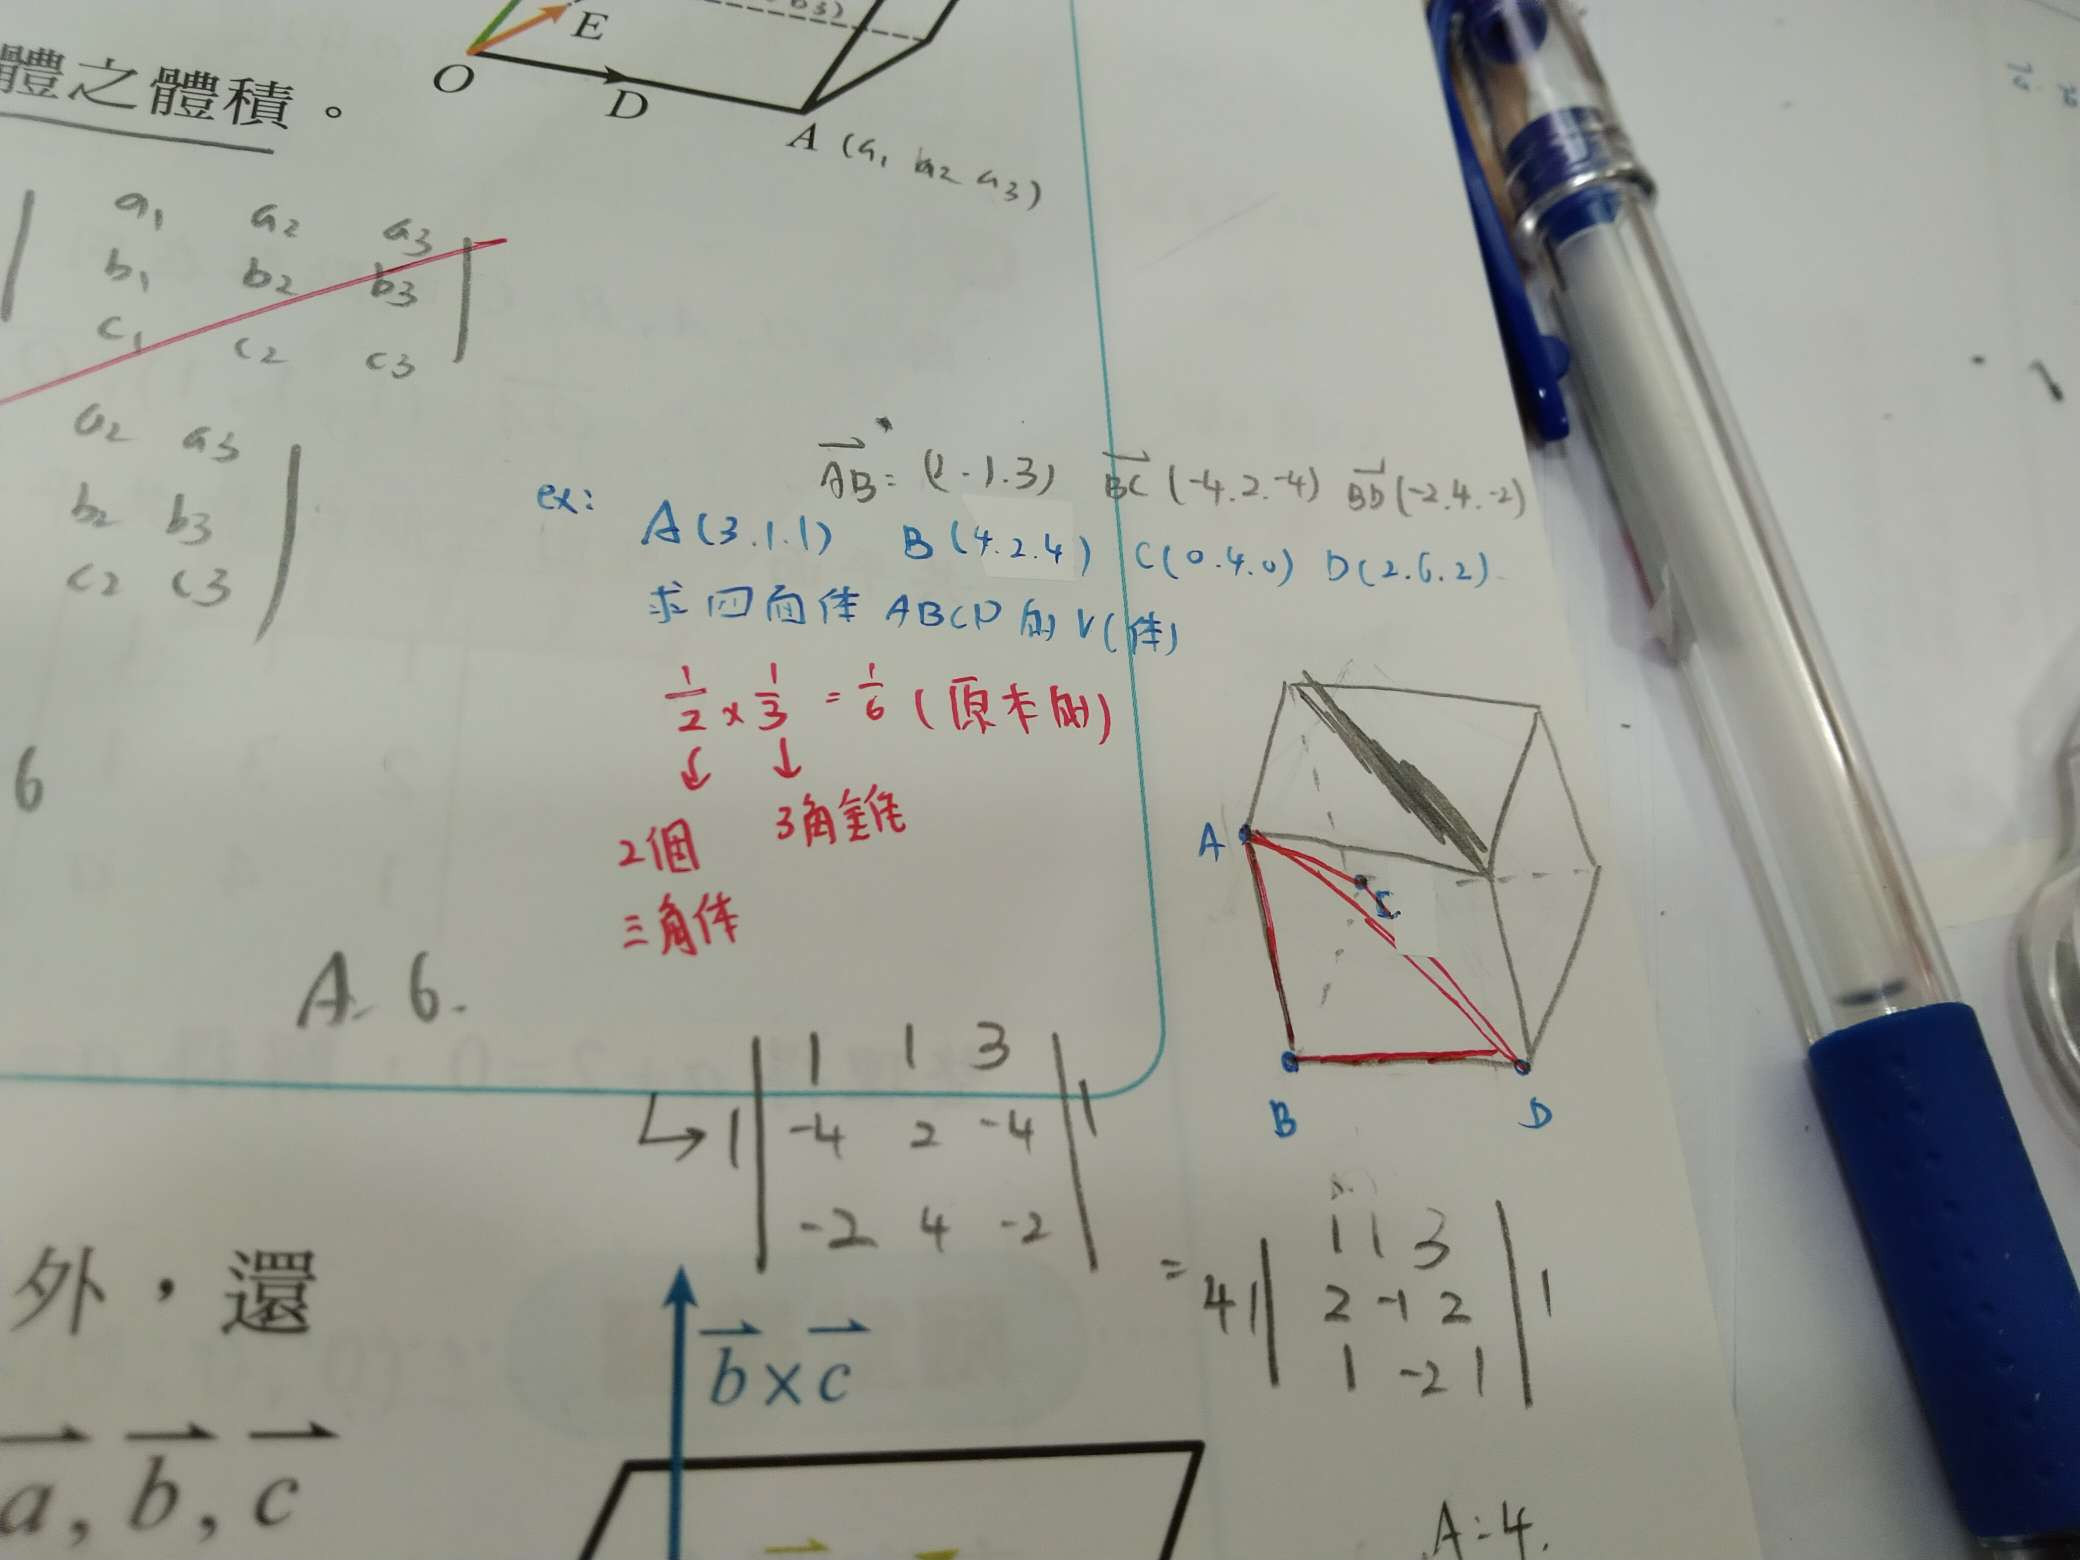 E
O
D
A (a₁ a₂ a₃)
體之體積。
a₁ a₂ a₃
b₁ b₂ b₃
c₁ c₂ c₃
a₂ a₃
b₂ b₃
c₂ c₃
AB = (1.1.3) BC (-4.2.-4) BD (-2.4.-2)
ex: A(3.1.1) B(4.2.4) C(0.4.0) D(2.6.2)
求四面体ABCD的V(体)
1/2 × 1/3 = 1/6 (原本的)
↓ ↓
2個 3角錐
三角体
6
A. 6.
A
C
B D
1 1 3
↳ | -4 2 -4 |
-2 4 -2
1 1 3
= 4 | 2 -1 2 |
1 -2 1
A = 4.
外，還
b × c
a, b, c